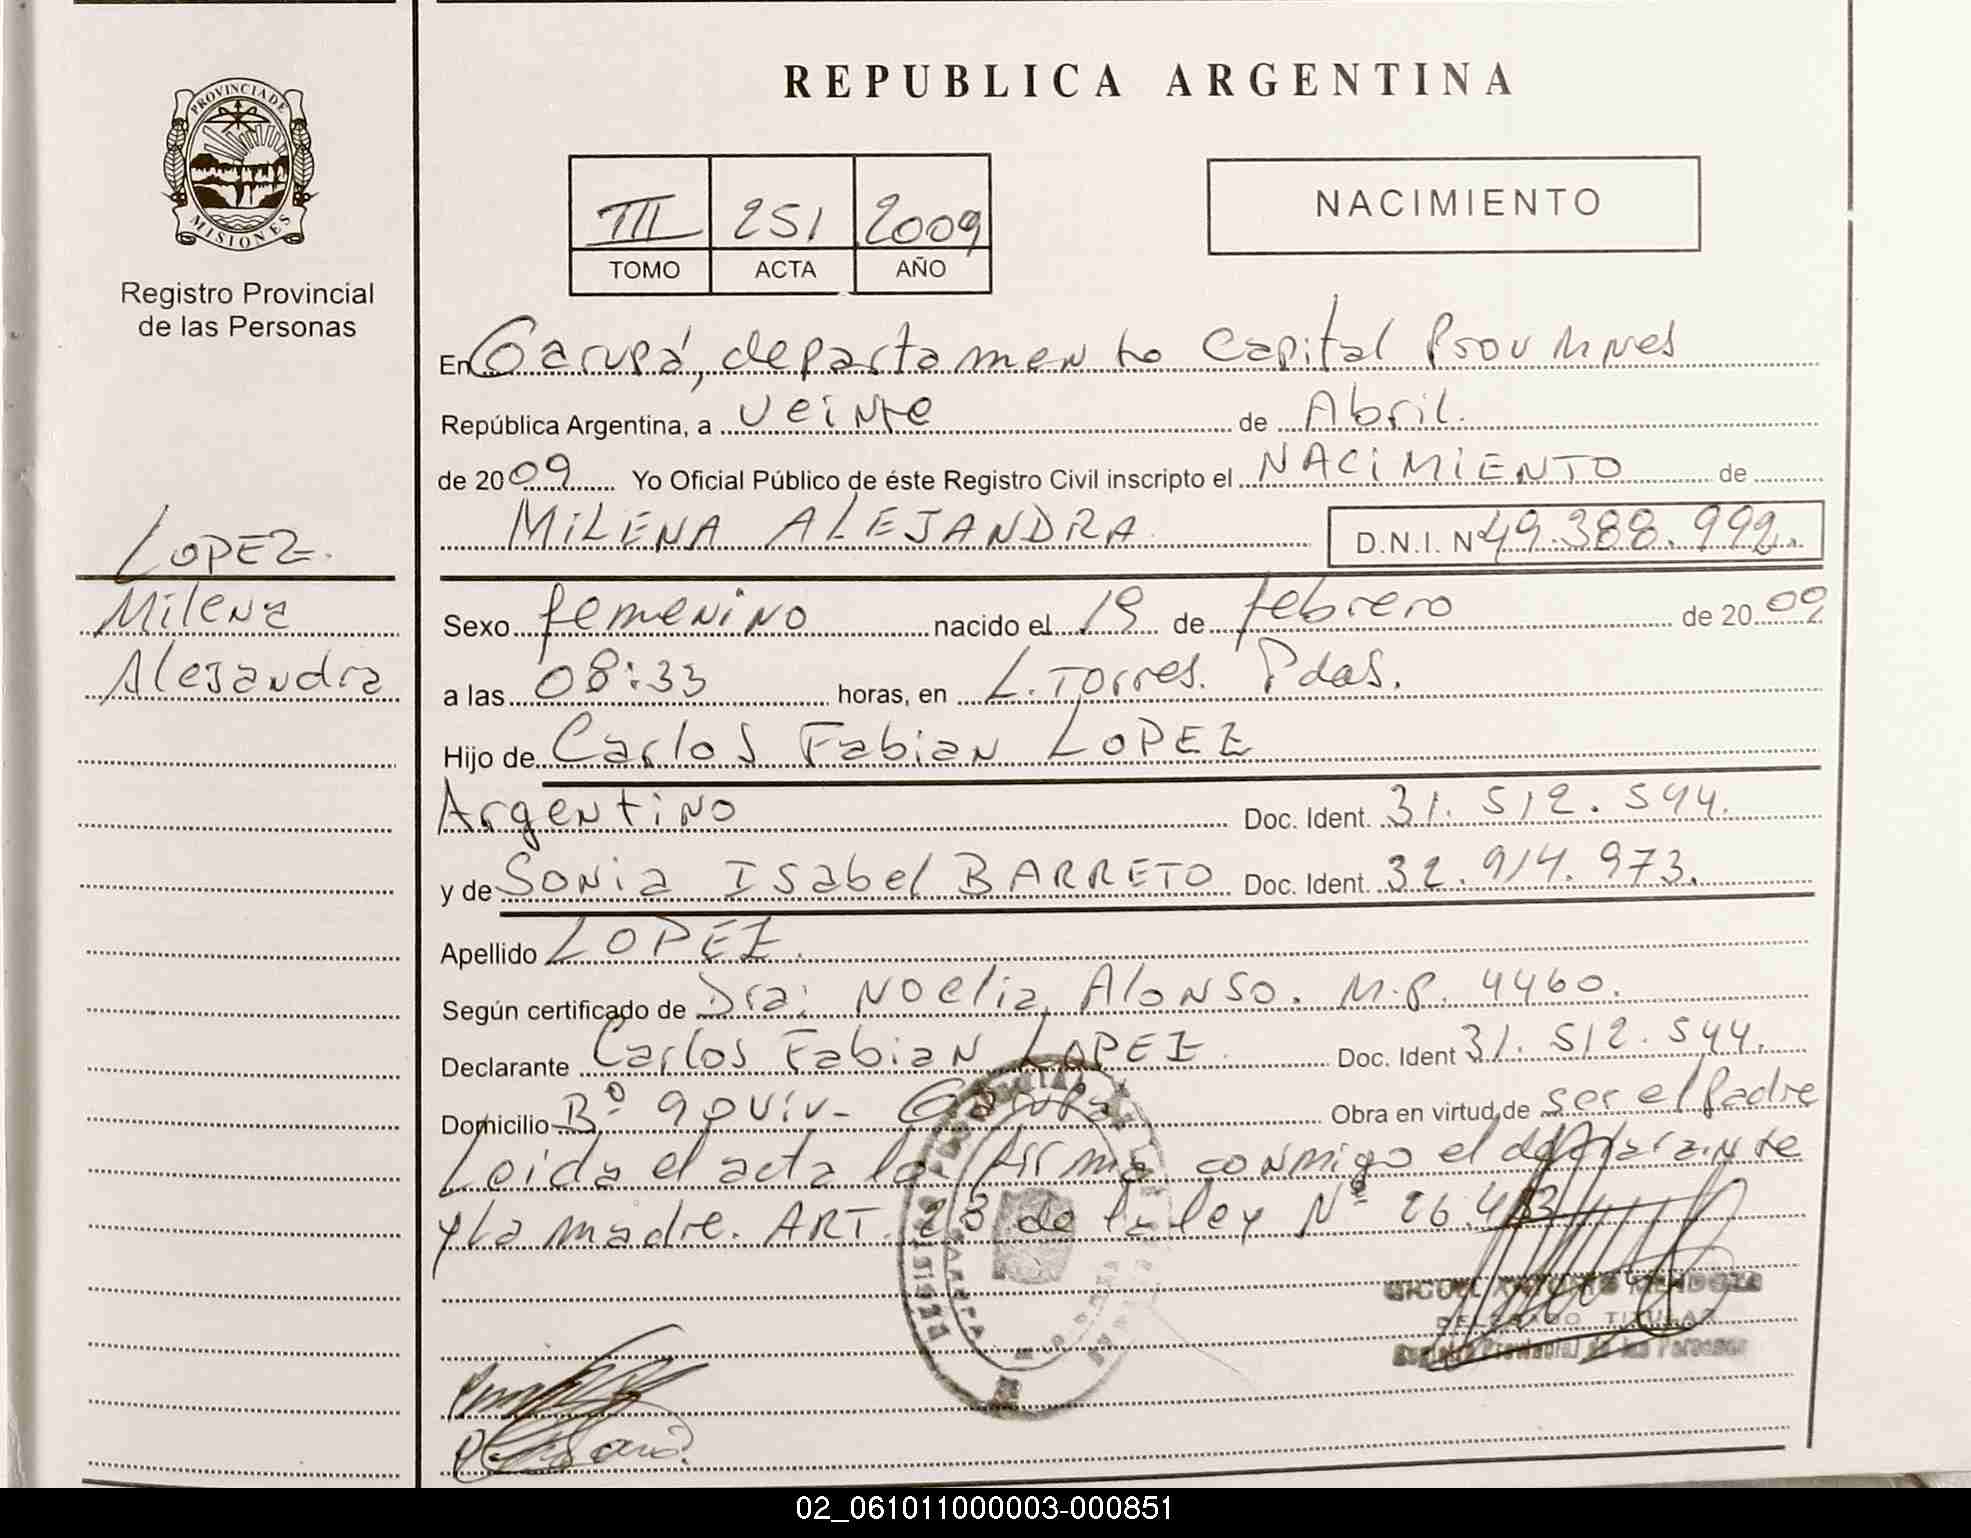 PROVINCIA DE
MISIONES
Registro Provincial
de las Personas
LOPEZ.
Milena
Alejandra
REPUBLICA ARGENTINA
III 251 2009
TOMO ACTA AÑO
NACIMIENTO
En Garupá, departamento Capital Prov Mnes
República Argentina, a veinte de Abril.
de 2009 Yo Oficial Público de éste Registro Civil inscripto el NACIMIENTO de
MILENA ALEJANDRA D.N.I. Nº 49.388.992.
Sexo femenino nacido el 19 de febrero de 2009
a las 08:33 horas, en L. Torres. Pdas.
Hijo de Carlos Fabian LOPEZ
Argentino Doc. Ident. 31.512.544.
y de Sonia Isabel BARRETO Doc. Ident. 32.914.973.
Apellido LOPEZ.
Según certificado de Dra: Noelia Alonso. M.P. 4460.
Declarante Carlos Fabian LOPEZ Doc. Ident 31.512.544.
Domicilio Bº 90 viv- Garupa Obra en virtud de ser el Padre
Leida el acta la firma conmigo el declarante
y la madre. ART. 23 de la ley Nº 26.413
MIGUEL MENDOZA
DELEGADO TITULAR
Registro Provincial de las Personas
02_061011000003-000851